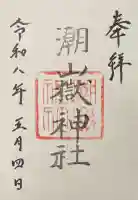 奉拝
潮嶽神社
令和八年 五月四日